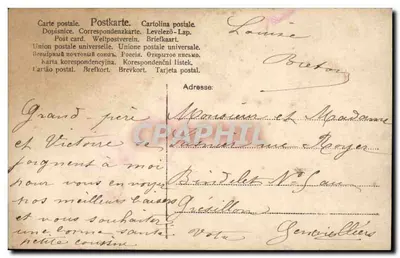 Carte postale. Postkarte. Cartolina postale.
Dopisnice. Correspondenzkarte. Levelező-Lap.
Post card. Weltpostverein. Briefkaart.
Union postale universelle. Unione postale universale.
Всемірный почтовый союзъ. Россія. Открытое письмо.
Karta korespondencyjna. Korespondenční lístek.
Cartão postal. Brefkort. Brevkort. Tarjeta postal.
Louise
Breton
Adresse:
Grand-père
et Victoire se
joignent à moi
pour vous envoyer
nos meilleurs baisers
et vous souhaiter
une bonne santé
petite cousine
Monsieur et Madame
rue
Bindelet No 5 au
Grésillon
Gennevilliers
CPRPHOTO